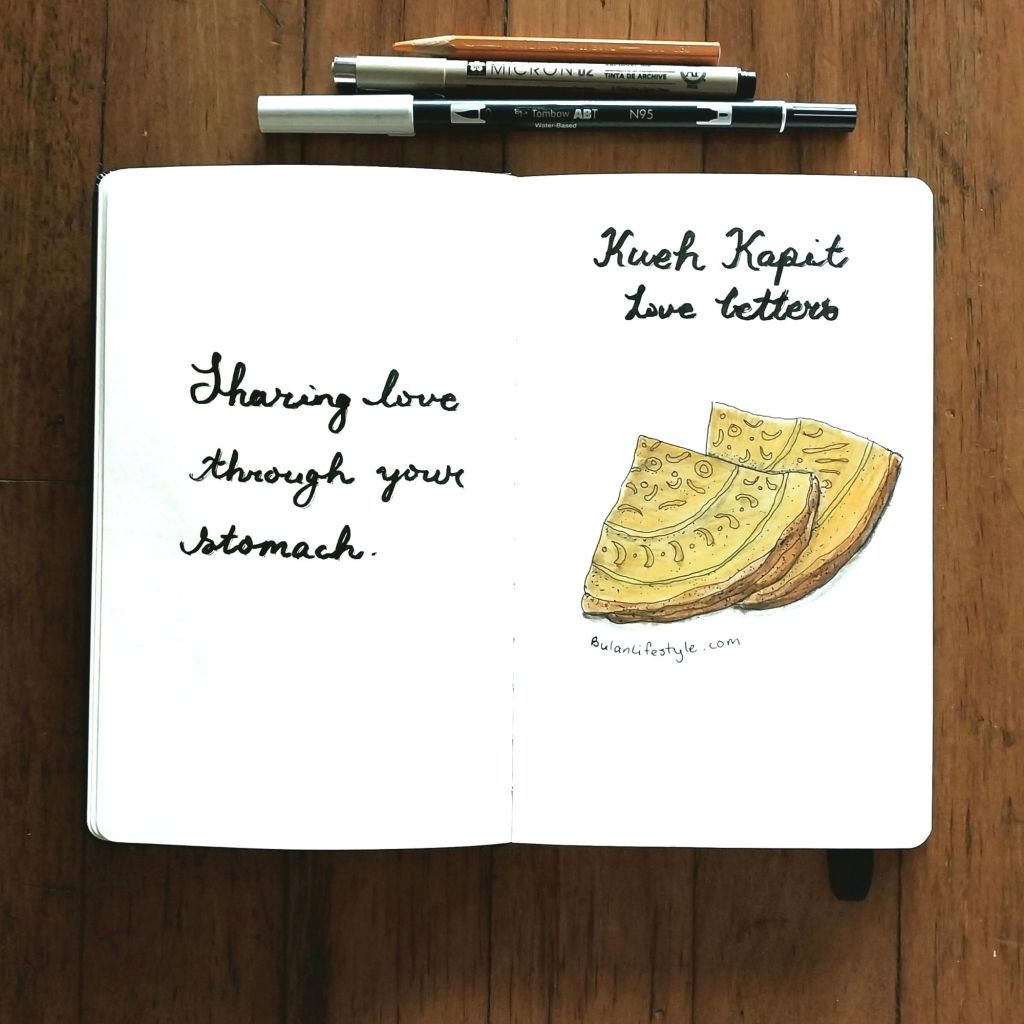 MICRON 02
TINTA DE ARCHIVE
Tombow ABT N95
Water-Based
Sharing love
through your
stomach.
Kueh Kapit
Love letters
BulanLifestyle.com